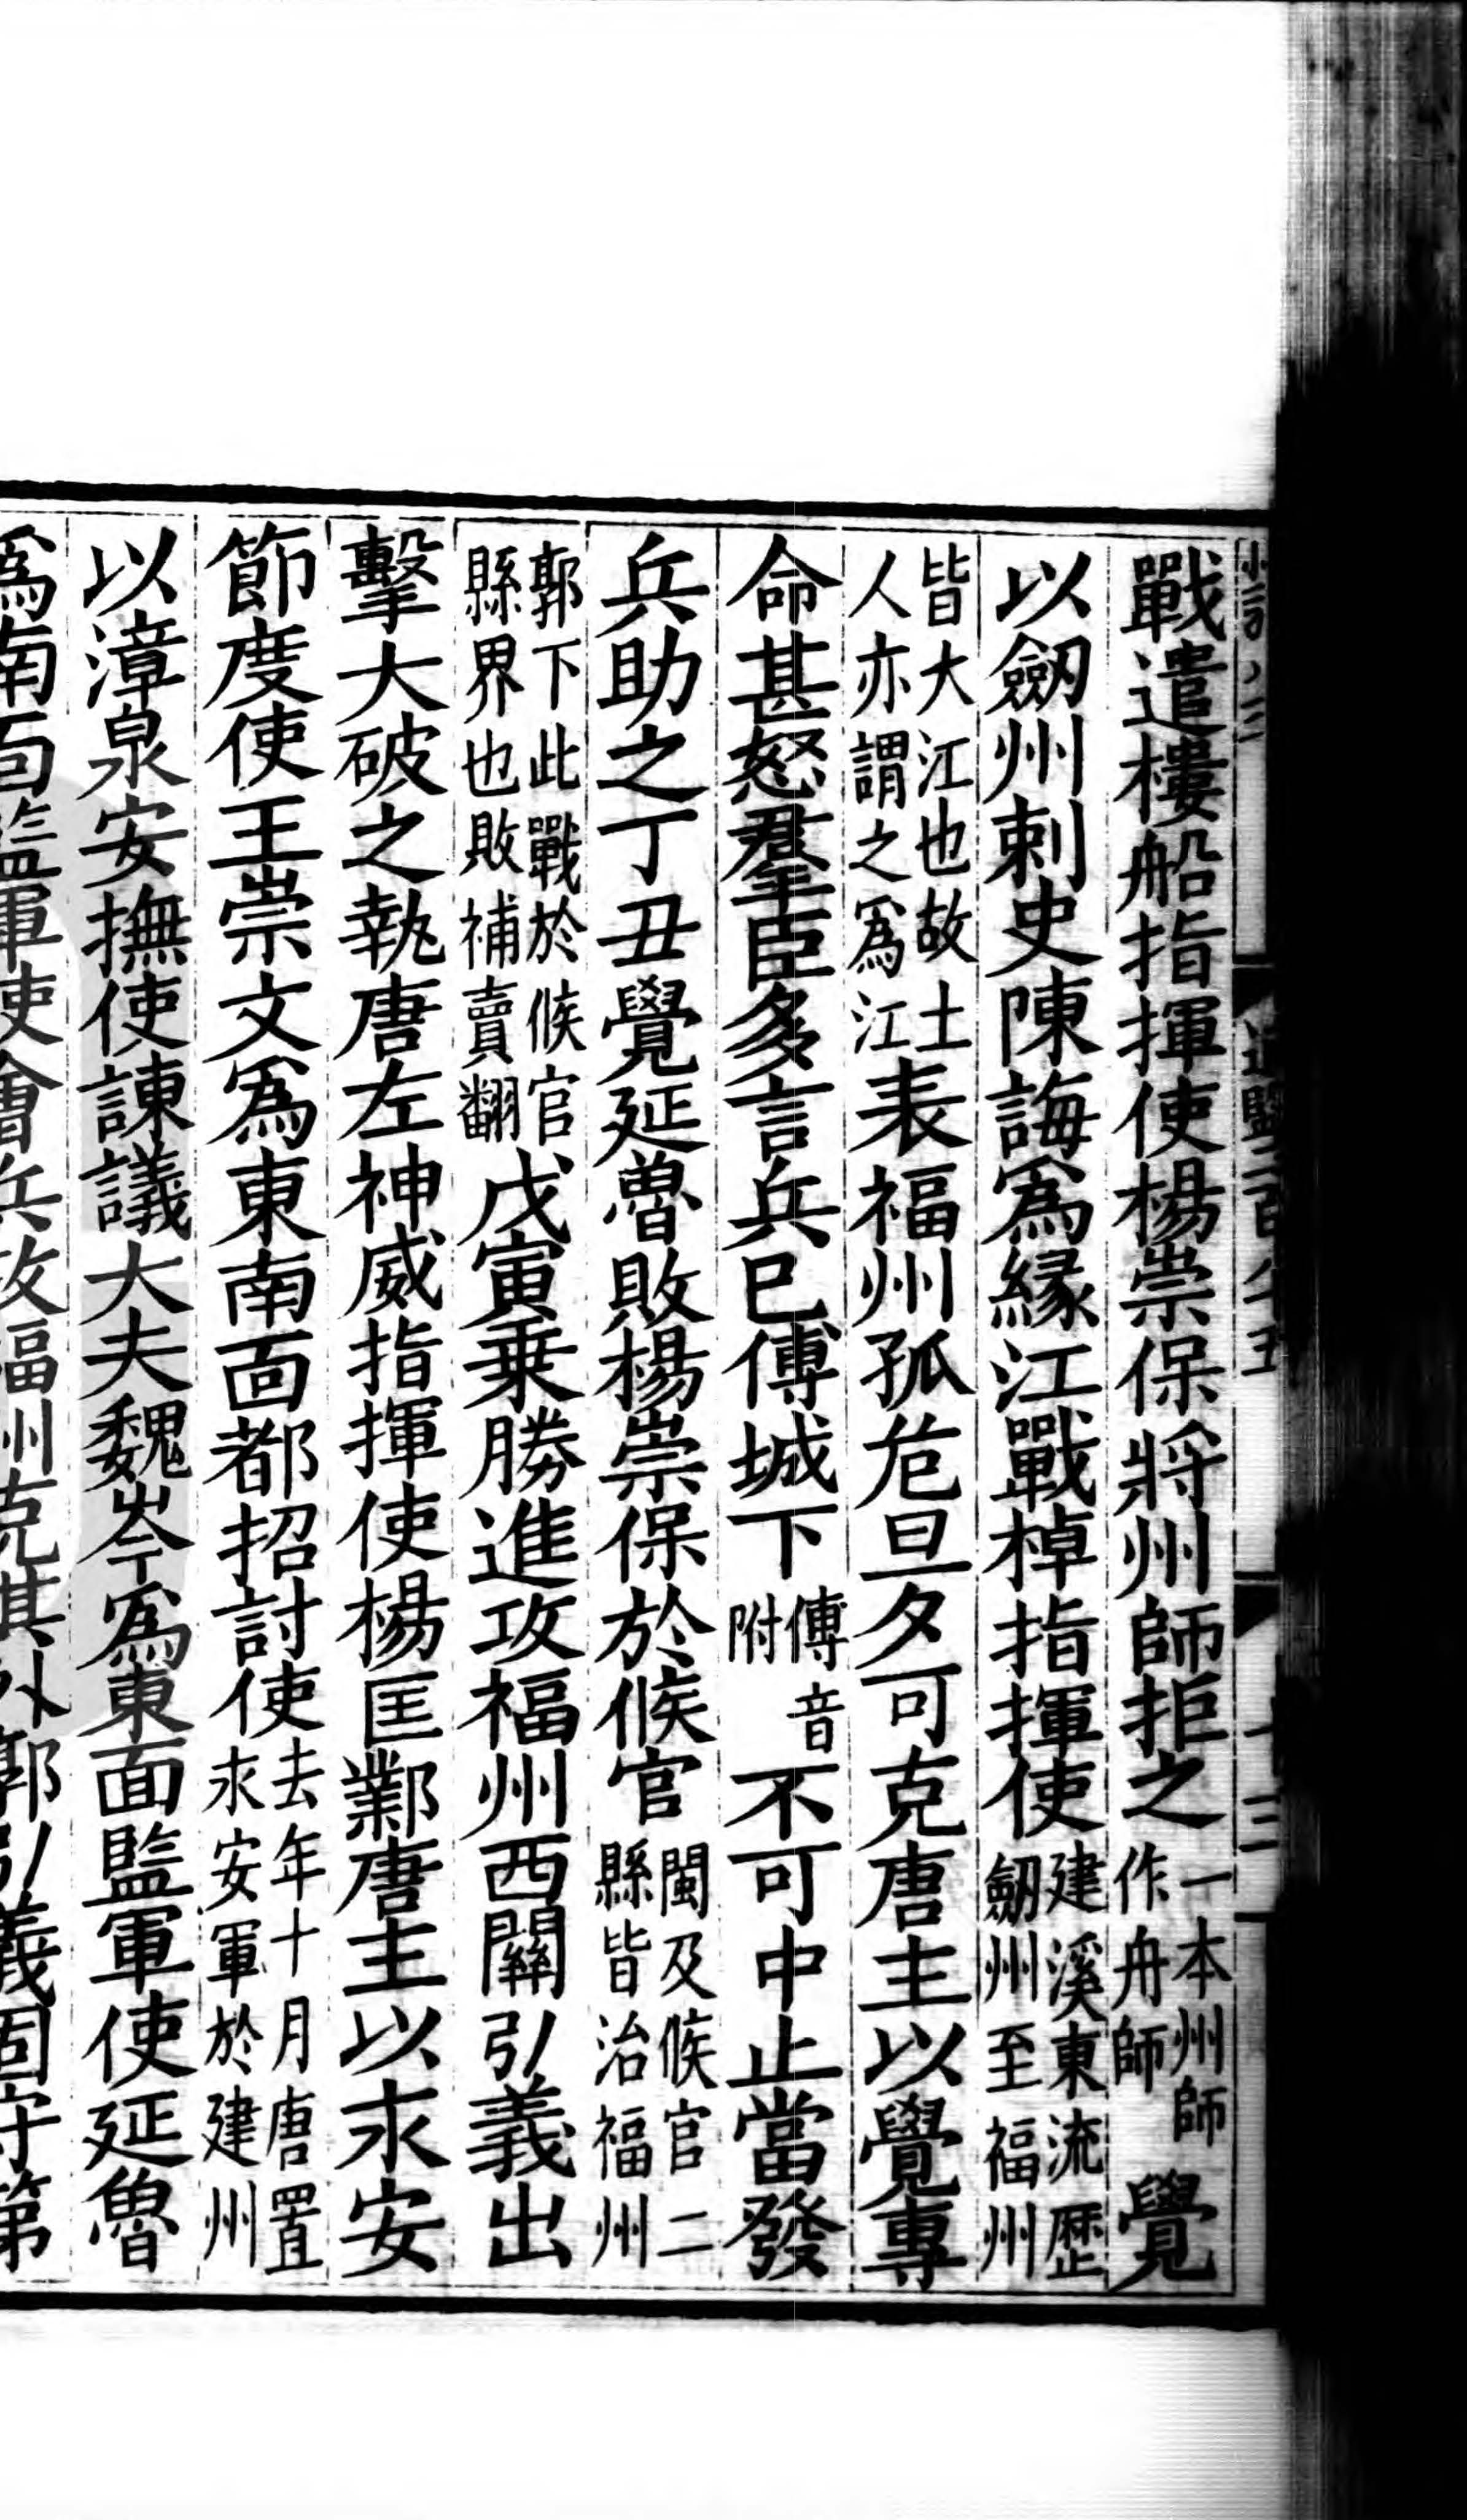 戰遣樓船指揮使楊崇保將州師拒之一本州師作舟師覺
以劒州刺史陳誨爲緣江戰棹指揮使建溪東流歷劒州至福州
皆大江也故土人亦謂之爲江表福州孤危旦夕可克唐主以覺專
命甚怒羣臣多言兵已傅城下傅音附不可中止當發
兵助之丁丑覺延魯敗楊崇保於候官閩及候官二縣皆治福州
郭下此戰於候官縣界也敗補賣翻戊寅乗勝進攻福州西關弘義出
擊大破之執唐左神威指揮使楊匡鄴唐主以永安
節度使王崇文爲東南面都招討使去年十月唐置永安軍於建州
以漳泉安撫使諫議大夫魏岑爲東面監軍使延魯
爲南面監軍使會兵攻福州克其外郭弘義固守第